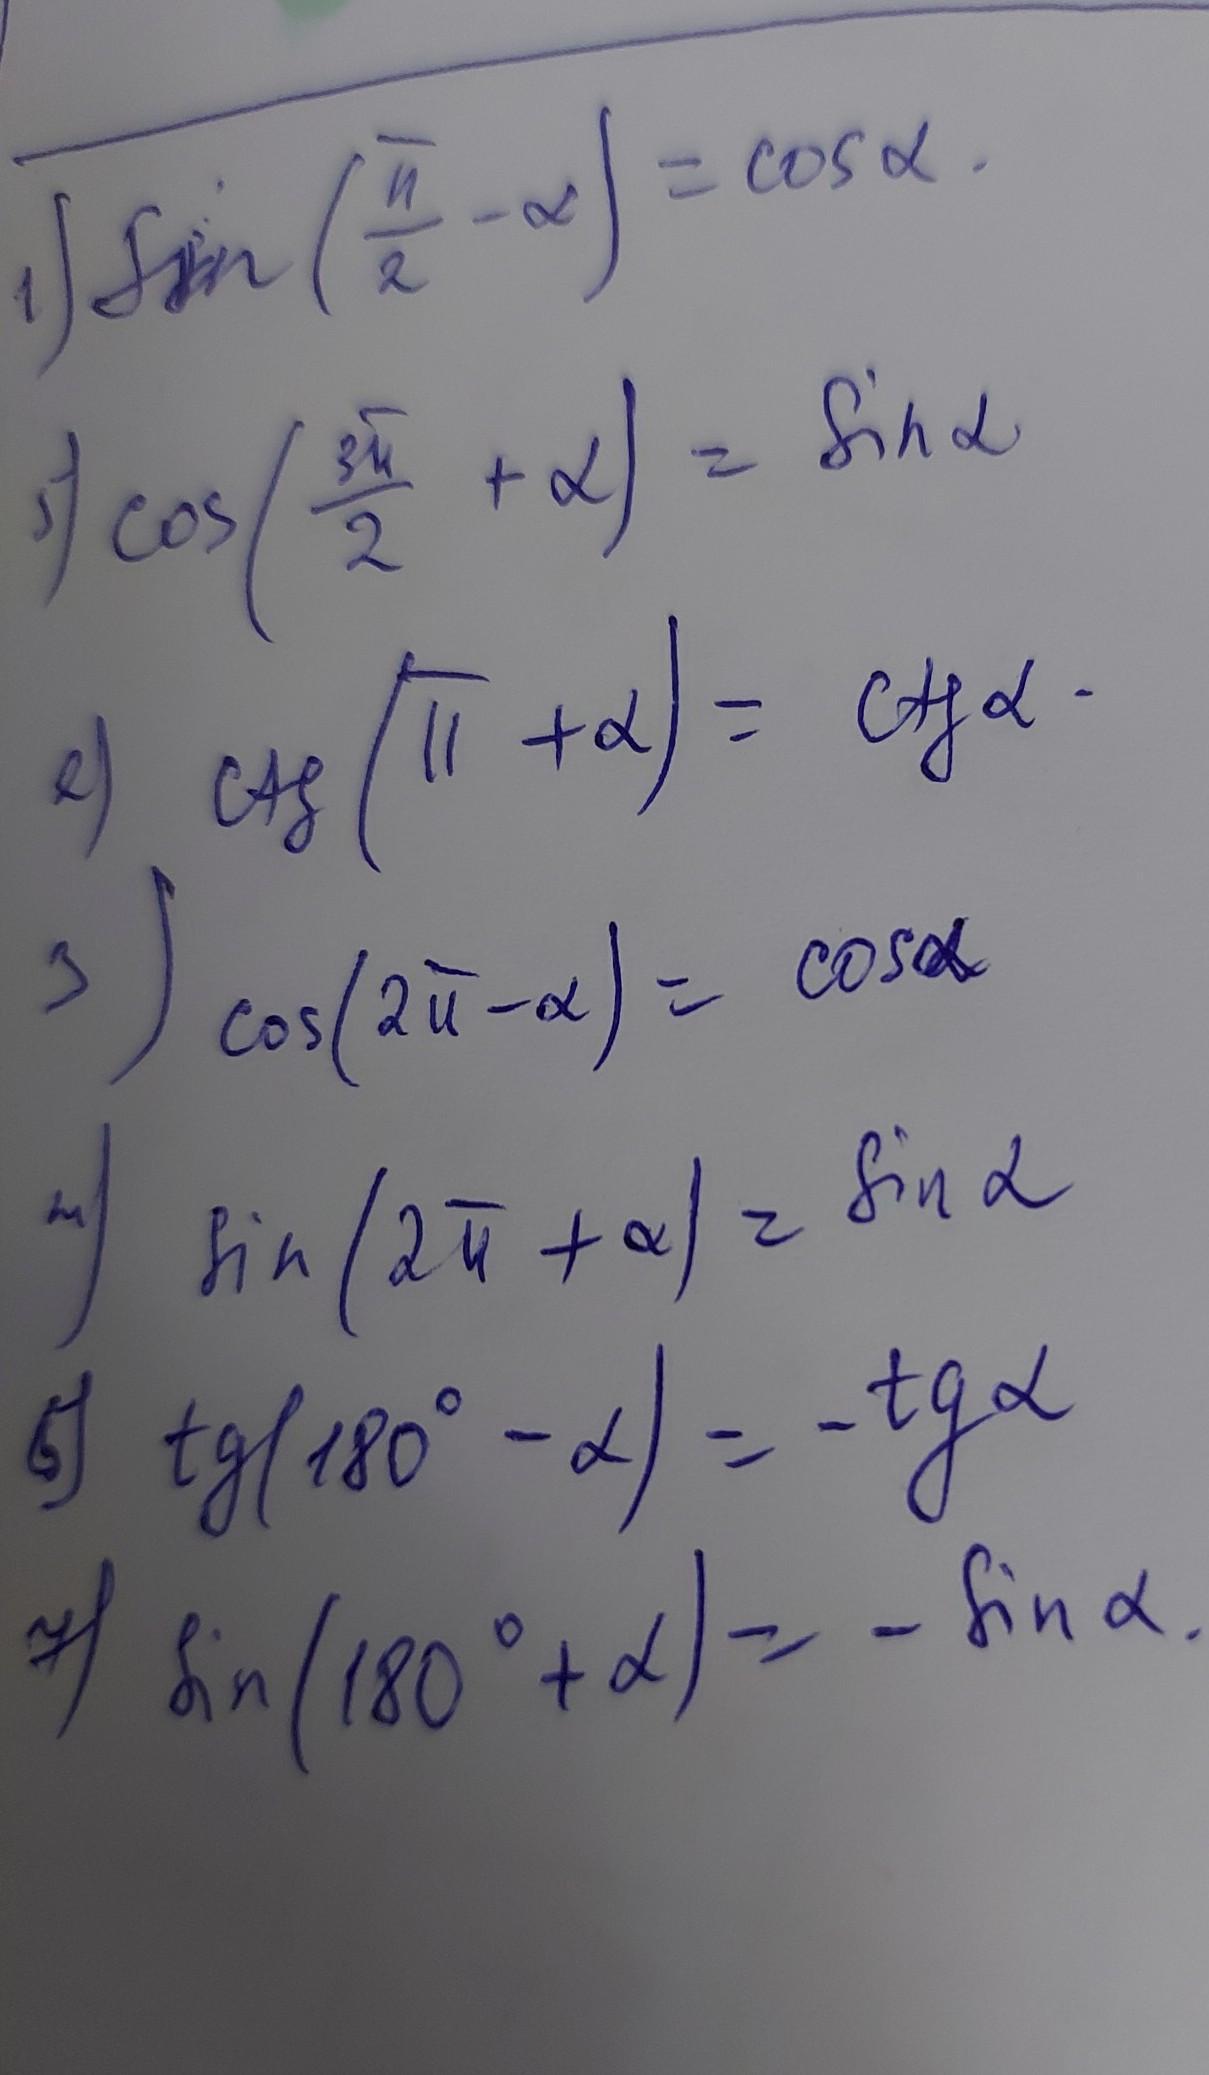 1) sin(π/2 - α) = cosα.
5) cos(3π/2 + α) = sinα
2) ctg(π + α) = ctgα.
3) cos(2π - α) = cosα
4) sin(2π + α) = sinα
6) tg(180° - α) = -tgα
7) sin(180° + α) = - sinα.